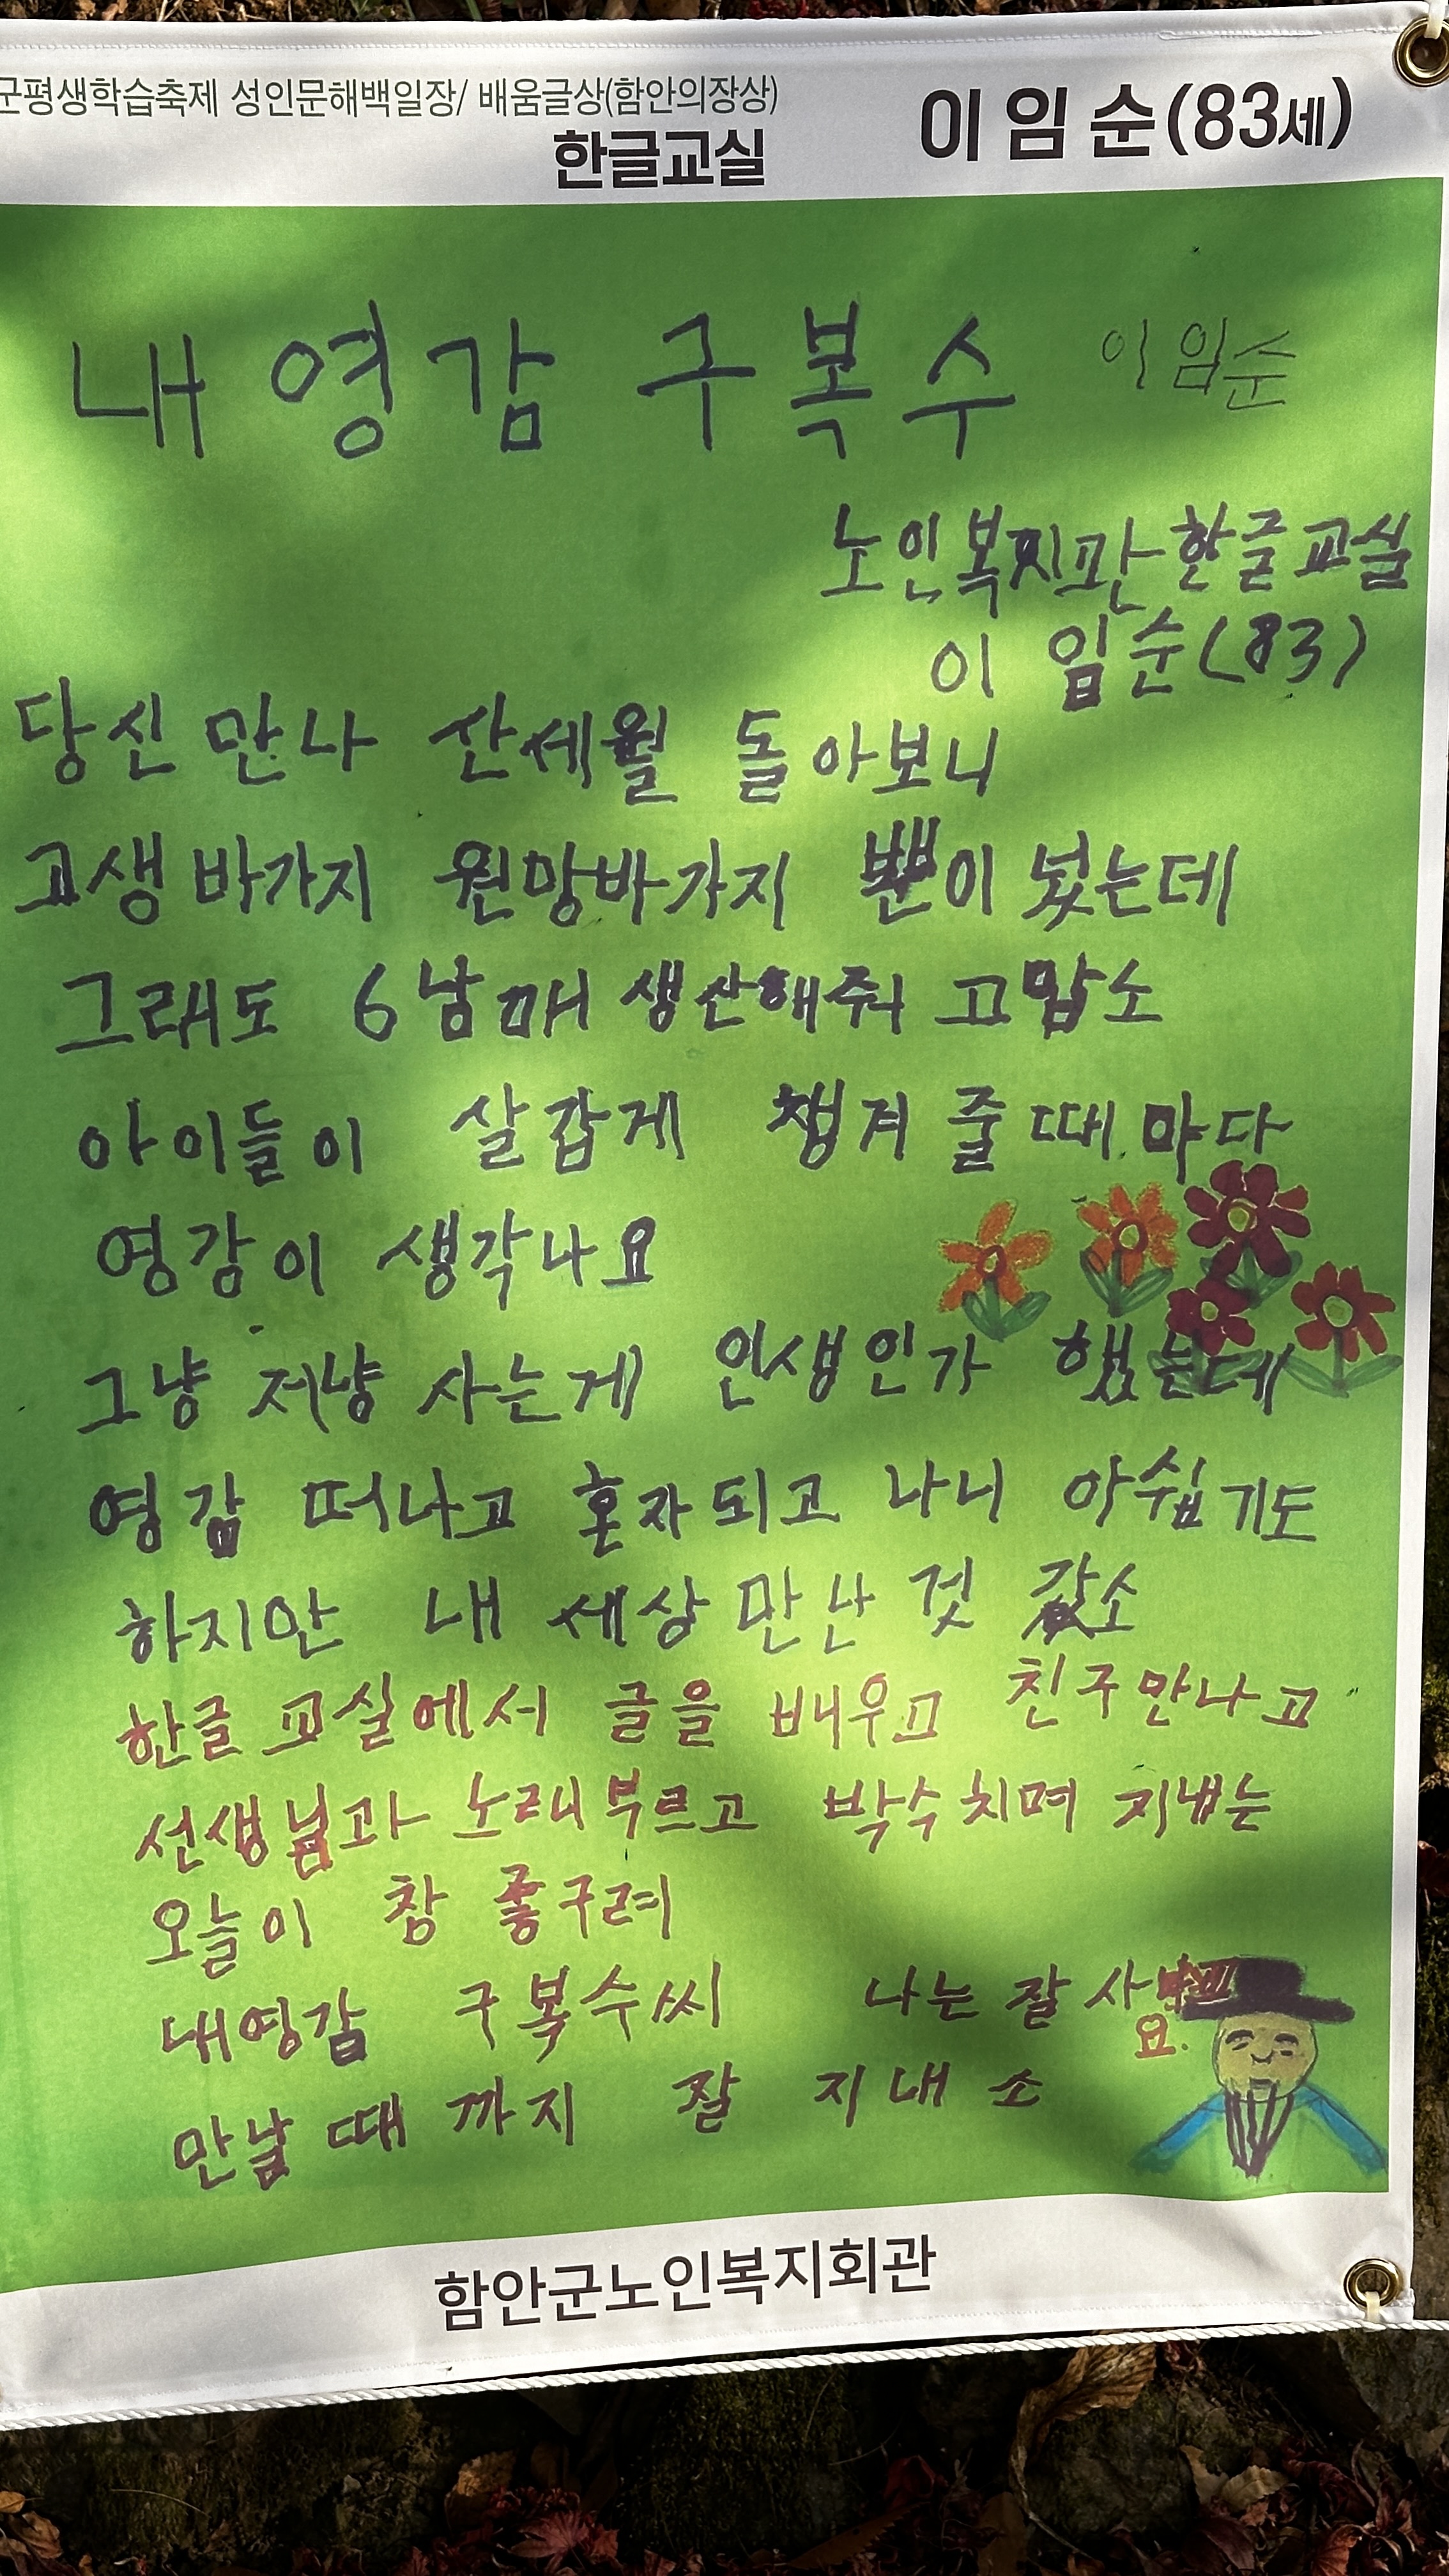 군평생학습축제 성인문해백일장/ 배움글상(함안의장상)
한글교실 이임순(83세)
내 영감 구복수 이임순
노인복지관 한글교실
이 임순(83)
당신 만나 산세월 돌아보니
고생바가지 원망바가지 뿐이 넜는데
그래도 6남매 생산해줘 고맙소
아이들이 살갑게 챙겨 줄때 마다
영감이 생각나요
그냥 저냥 사는게 인생인가 했는데
영감 떠나고 혼자되고 나니 아쉽기도
하지만 내 세상 만난 것 갔소
한글 교실에서 글을 배우고 친구만나고
선생님과 노래부르고 박수치며 지내는
오늘이 참 좋구려
내영감 구복수씨 나는 잘 사
요.
만날 때 까지 잘 지내소
함안군노인복지회관